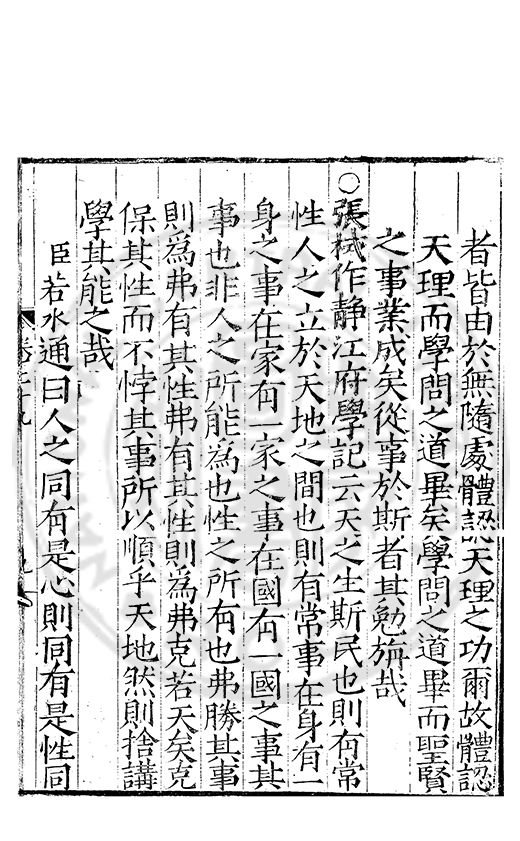 者皆由於無隨處體認天理之功爾故體認
天理而學問之道畢矣學問之道畢而聖賢
之事業成矣從事於斯者其勉旃哉
○張栻作静江府學記云天之生斯民也則有常
性人之立於天地之間也則有常事在身有一
身之事在家有一家之事在國有一國之事其
事也非人之所能為也性之所有也弗勝其事
則為弗有其性弗有其性則為弗克若天矣克
保其性而不悖其事所以順乎天地然則捨講
學其能之哉
臣若水通曰人之同有是心則同有是性同